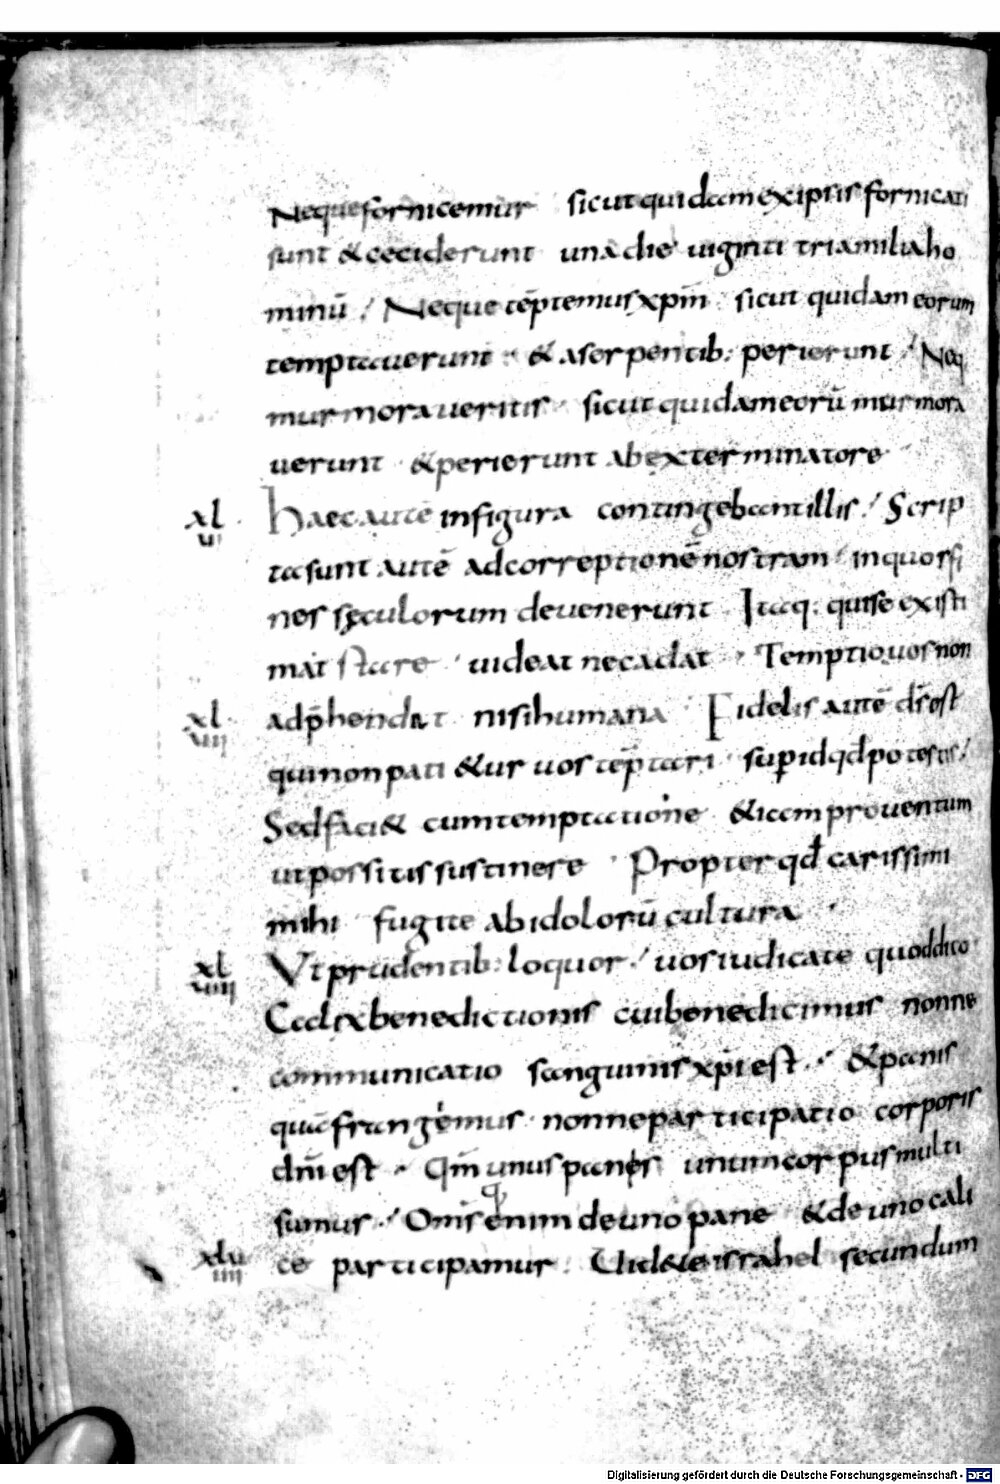 Neque fornicemur sicut quidam exipsis fornicati
sunt & ceciderunt una die uiginti triamilia ho
minū Neque tēptemus xpm̄ sicut quidam eorum
temptauerunt & aserpentib: perierunt Neq
murmoraueritis sicut quidam eorū murmora
uerunt & perierunt ab exterminatore
xl ui Haec autē infigura contingebant illis Scrip
ta sunt autē adcorreptionē nostram inquos fi
nes sęculorum deuenerunt Itaq: quise existi
mat stare uideat necadat Temptio uos non
xl uiii adp̄hendat nisi humana Fidelis autē ds̄ est
qui non pati&ur uos tēptari sup id qd potestis
Sed faci& cumtemptatione & iam prouentum
ut possitis sustinere Propter qd carissimi
mihi fugite abidolorū cultura
xl uiiii Vt prudentib: loquor uos iudicate quod dico
Calix benedictionis cui benedicimus nonne
communicatio sanguinis xpi est & panis
quē frangimus nonne participatio corporis
dn̄i est Qm̄ unus panis unum corpus multi
sumus Om̄s enim de uno pane & de uno cali
xlu iiii ce participamur Uid&e israhel secundum
Digitalisierung gefördert durch die Deutsche Forschungsgemeinschaft - DFG